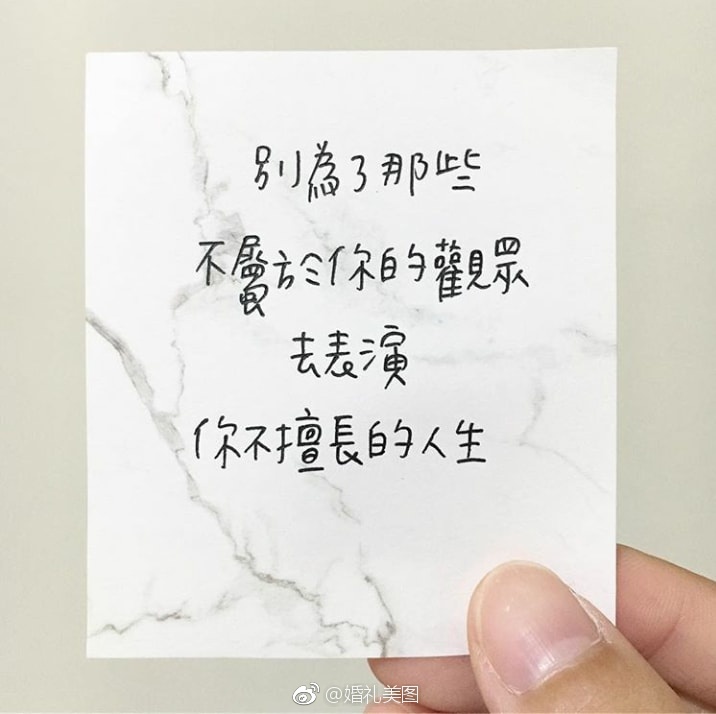 別為了那些
不屬於你的觀眾
去表演
你不擅長的人生
@婚礼美图